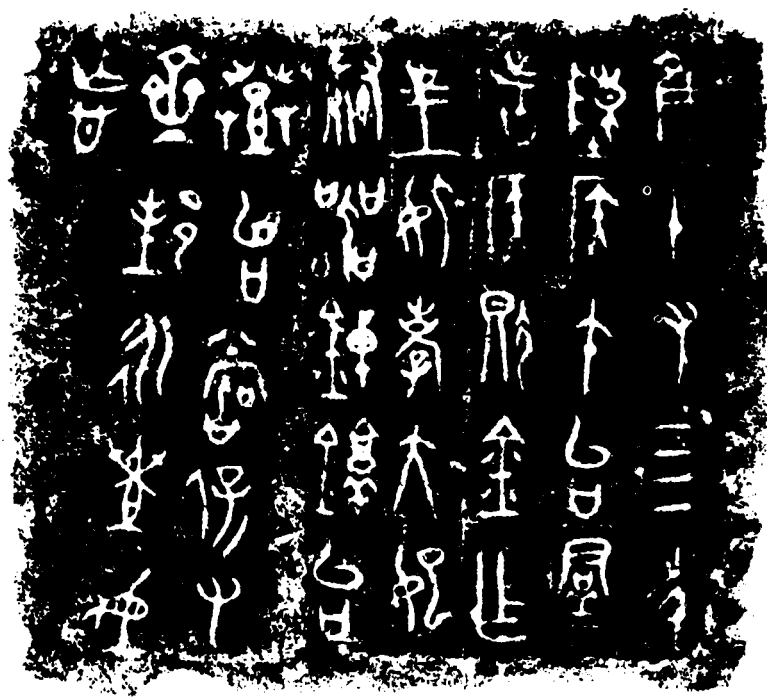 隹十又四年
陳侯午台群
者侯獻金乍
皇妣孝大妃
祭器錞台
登台嘗保又
齊邦永世毋
忘